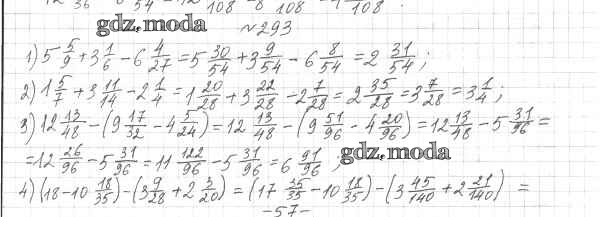 gdz.moda
№293
1) 5 5/9 + 3 1/6 - 6 4/27 = 5 30/54 + 3 9/54 - 6 8/54 = 2 31/54 ;
2) 1 5/7 + 3 11/14 - 2 1/4 = 1 20/28 + 3 22/28 - 2 7/28 = 2 35/28 = 3 7/28 = 3 1/4 ;
3) 12 13/48 - (9 17/32 - 4 5/24) = 12 13/48 - (9 51/96 - 4 20/96) = 12 13/48 - 5 31/96 =
= 12 26/96 - 5 31/96 = 11 122/96 - 5 31/96 = 6 91/96 ;
gdz.moda
4) (18 - 10 18/35) - (3 9/28 + 2 3/20) = (17 35/35 - 10 18/35) - (3 45/140 + 2 21/140) =
-57-